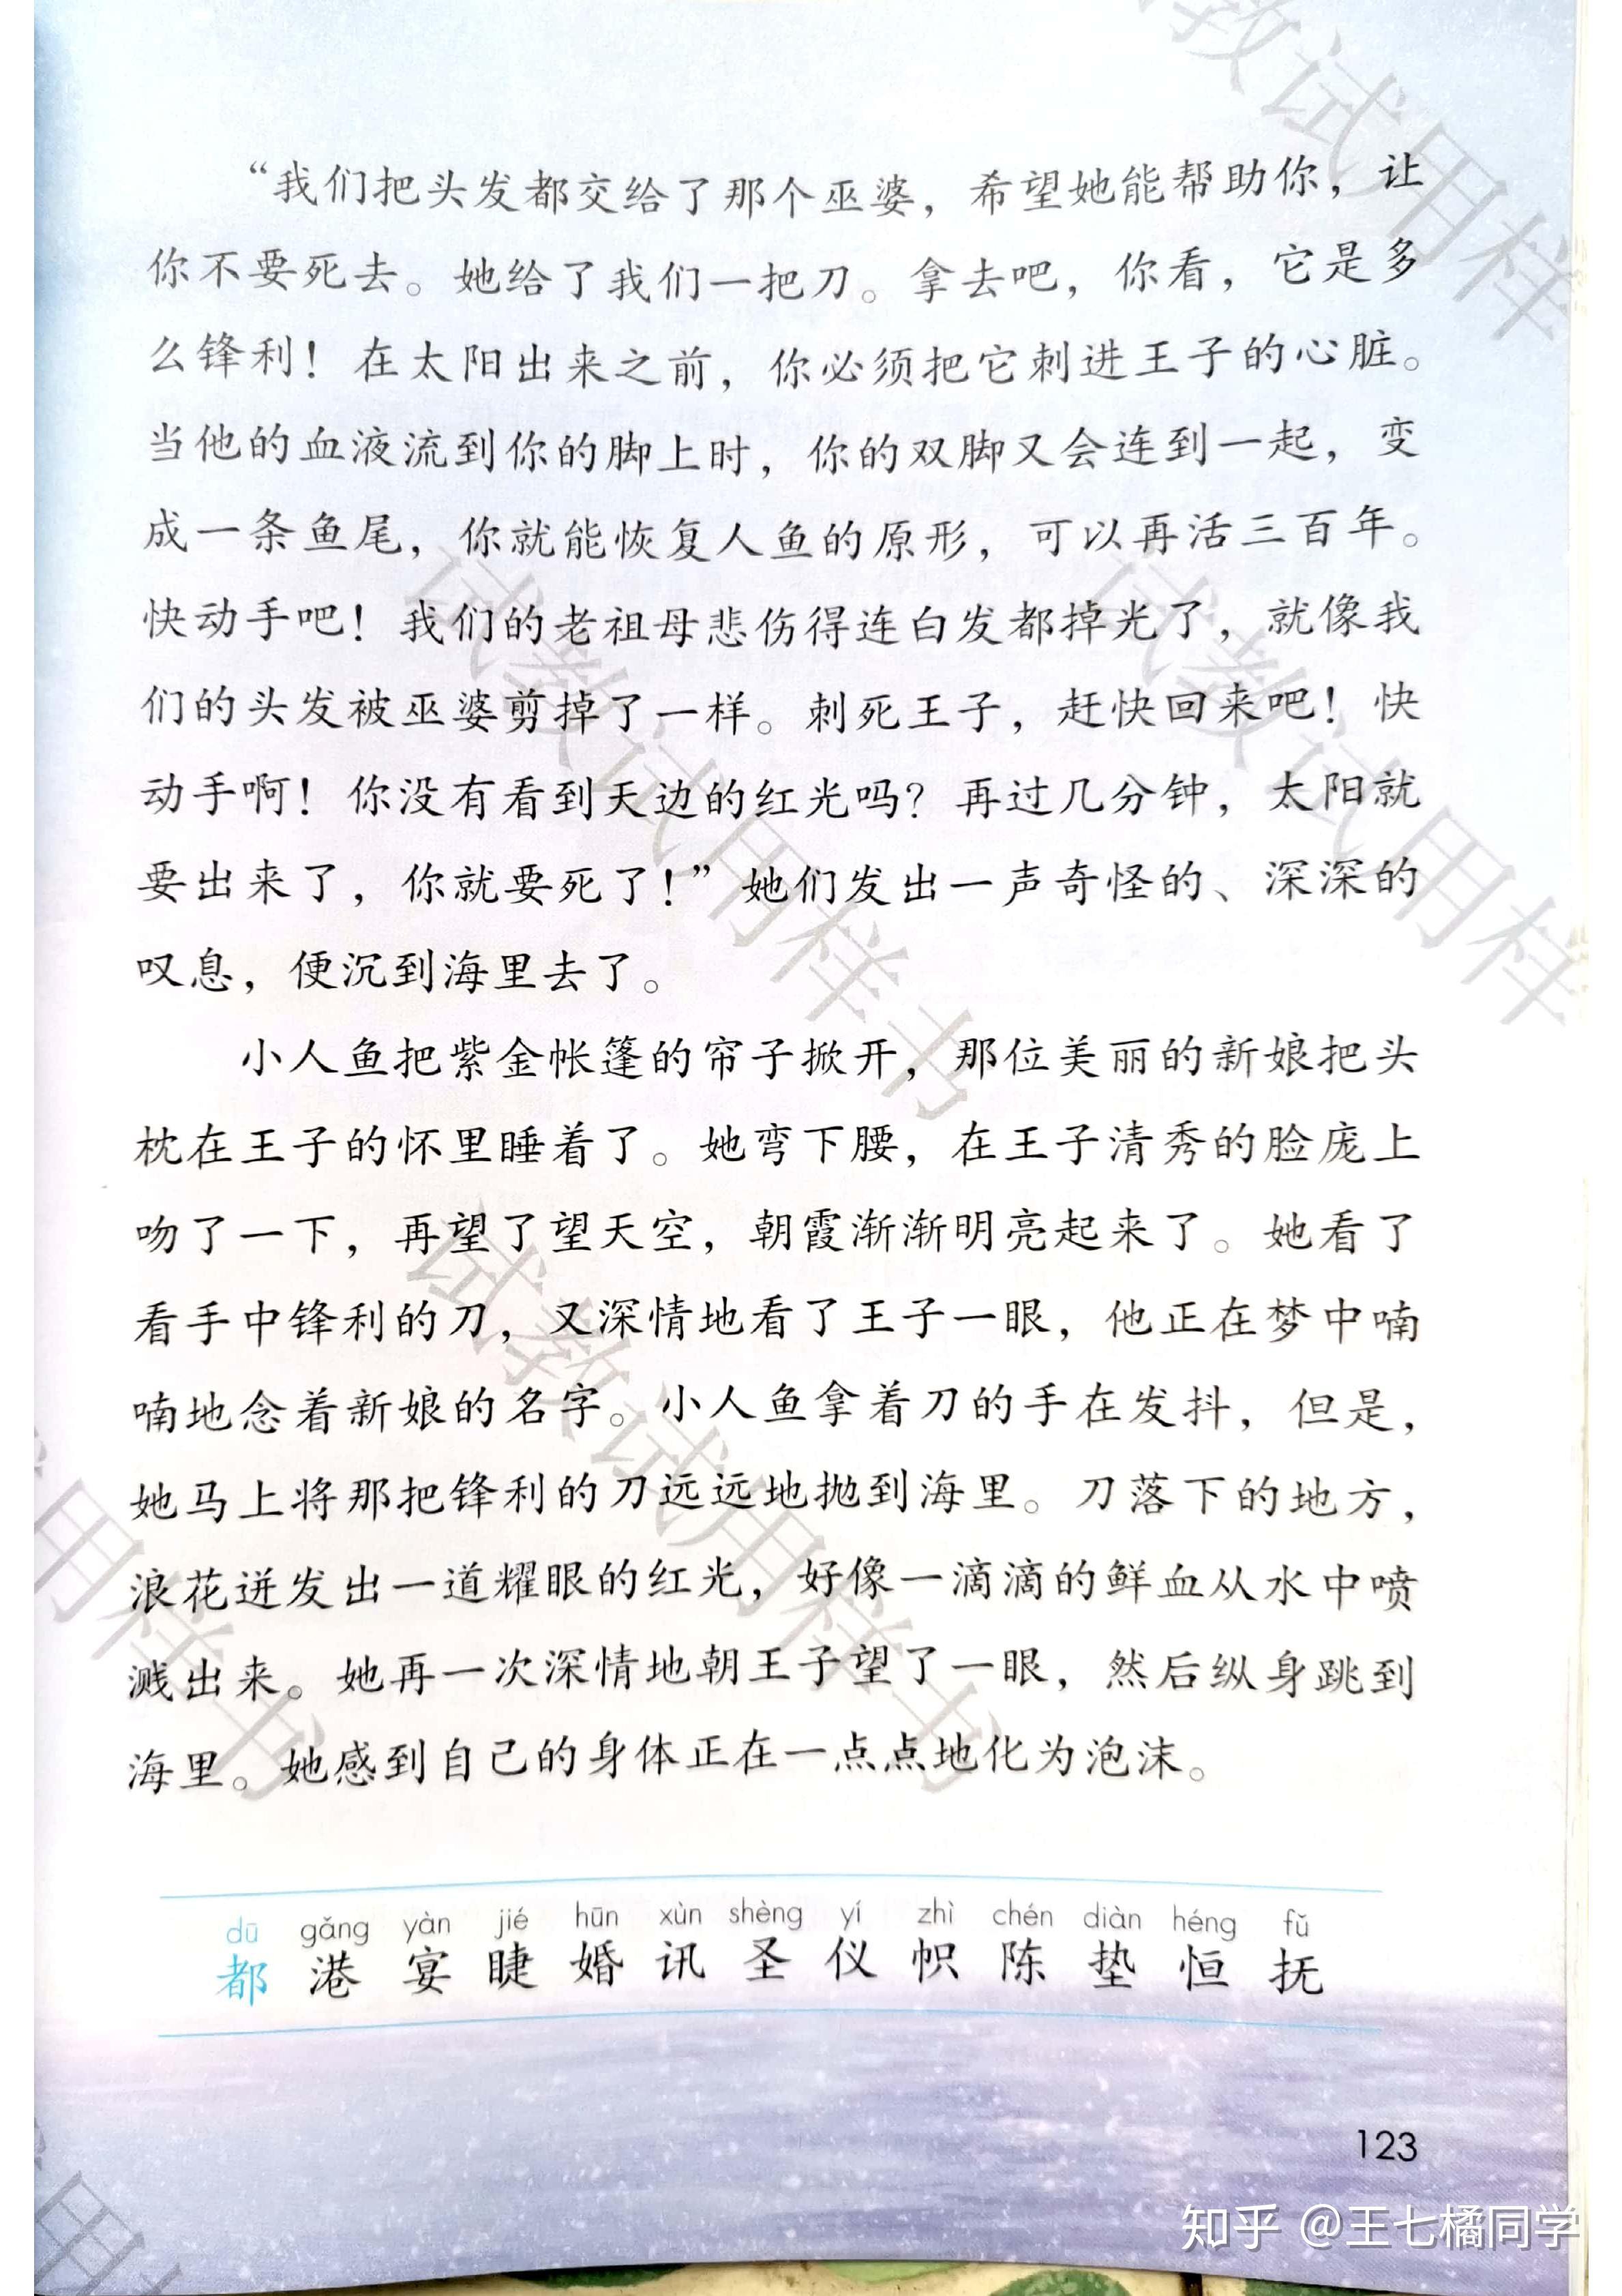 “我们把头发都交给了那个巫婆，希望她能帮助你，让
你不要死去。她给了我们一把刀。拿去吧，你看，它是多
么锋利！在太阳出来之前，你必须把它刺进王子的心脏。
当他的血液流到你的脚上时，你的双脚又会连到一起，变
成一条鱼尾，你就能恢复人鱼的原形，可以再活三百年。
快动手吧！我们的老祖母悲伤得连白发都掉光了，就像我
们的头发被巫婆剪掉了一样。刺死王子，赶快回来吧！快
动手啊！你没有看到天边的红光吗？再过几分钟，太阳就
要出来了，你就要死了！”她们发出一声奇怪的、深深的
叹息，便沉到海里去了。
小人鱼把紫金帐篷的帘子掀开，那位美丽的新娘把头
枕在王子的怀里睡着了。她弯下腰，在王子清秀的脸庞上
吻了一下，再望了望天空，朝霞渐渐明亮起来了。她看了
看手中锋利的刀，又深情地看了王子一眼，他正在梦中喃
喃地念着新娘的名字。小人鱼拿着刀的手在发抖，但是，
她马上将那把锋利的刀远远地抛到海里。刀落下的地方，
浪花迸发出一道耀眼的红光，好像一滴滴的鲜血从水中喷
溅出来。她再一次深情地朝王子望了一眼，然后纵身跳到
海里。她感到自己的身体正在一点点地化为泡沫。
dū gǎng yàn jié hūn xùn shèng yí zhì chén diàn héng fǔ
都 港 宴 睫 婚 讯 圣 仪 帜 陈 垫 恒 抚
123
知乎 @王七橘同学
试教试用样书
试教试用样
教试用样
试教试用样书
用样书